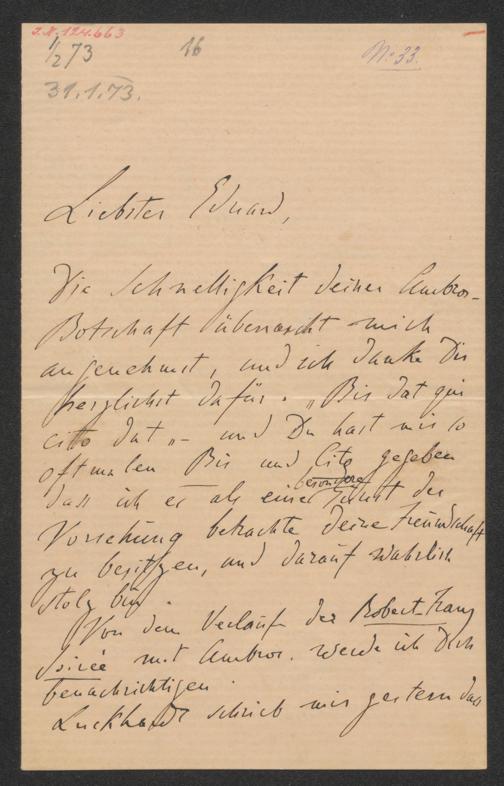 I.N. 124.663
1/2 73
16
No: 33.
31.1.73.
Liebster Eduard,
Die Schnelligkeit deiner Ambros-
Botschaft überrascht mich
angenehmst, und ich danke Dir
herzlichst dafür. „Bis dat qui
cito dat"- und Du hast mir so
oftmalen Bis und Cito gegeben
dass ich es als eine besondere Gunst der
Vorsehung betrachte deine Freundschaft
zu besitzen, und darauf wahrlich
stolz bin.
Von dem Verlauf der Robert Franz
Soirée mit Ambros. werde ich Dich
benachrichtigen
Luckhardt schrieb mir gestern dass